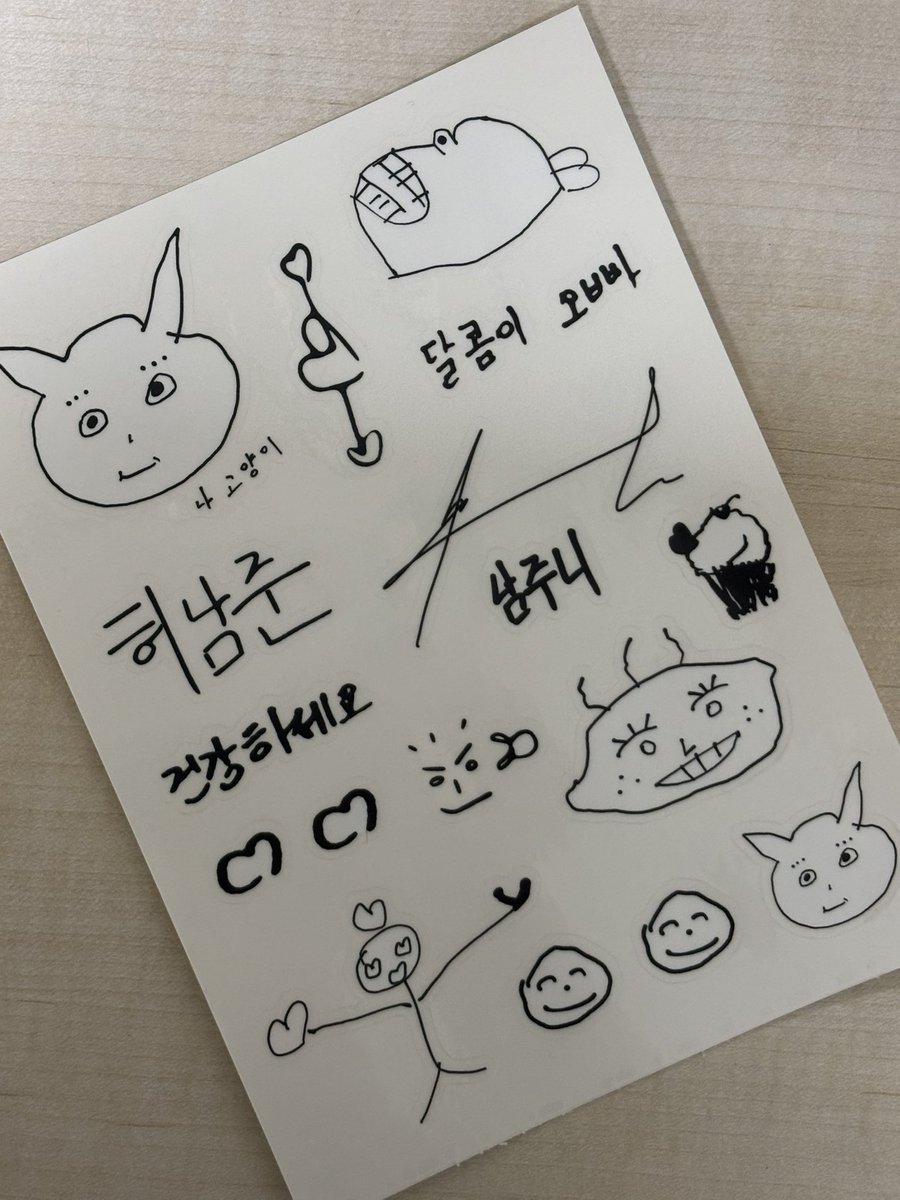 달콤이 오빠
나 고양이
허남준
남주니
건강하세요